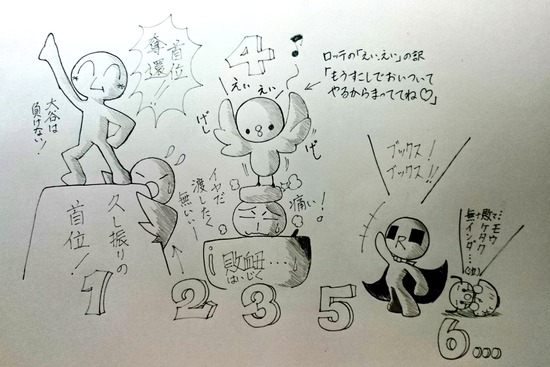 首位
奪還!!
大谷は
負けない!
久し振りの
首位!
1
イヤだ
渡したく
無いぃ!
2
4
えい えい
げし
げし
痛い!
3
ロッテの「えい、えい」の訳
「もうすこしでおいついて
やるからまっててね♡」
ブックス!
ブックス!!
R
5
モウ
敗ケタク
無インダ…
6...